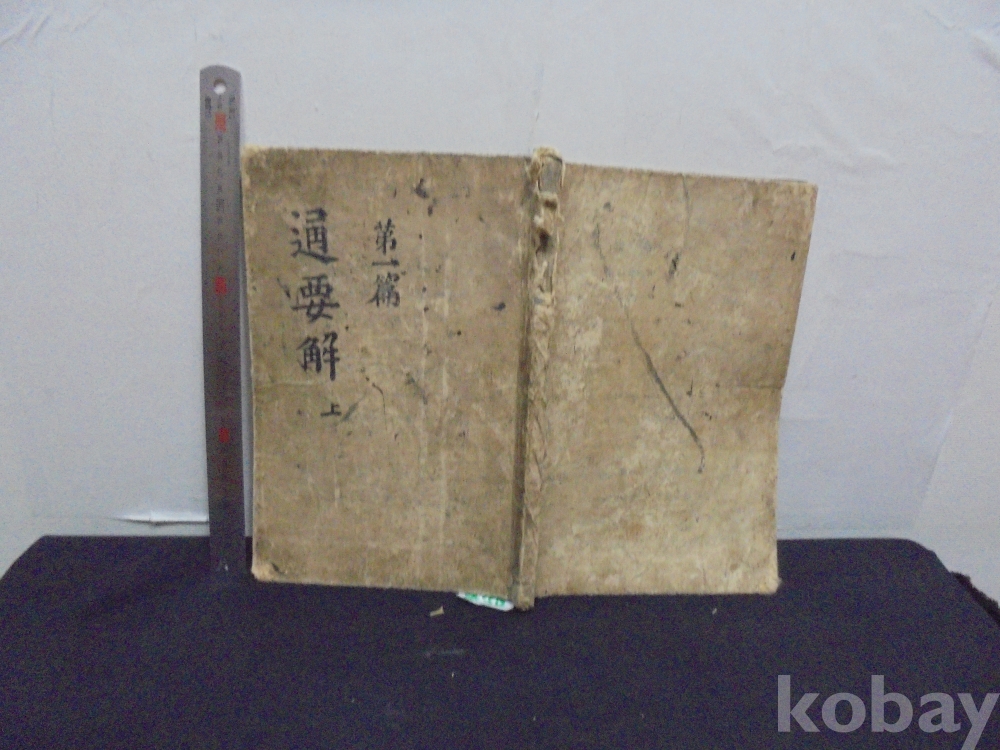 通要解
上
第一篇
kobay